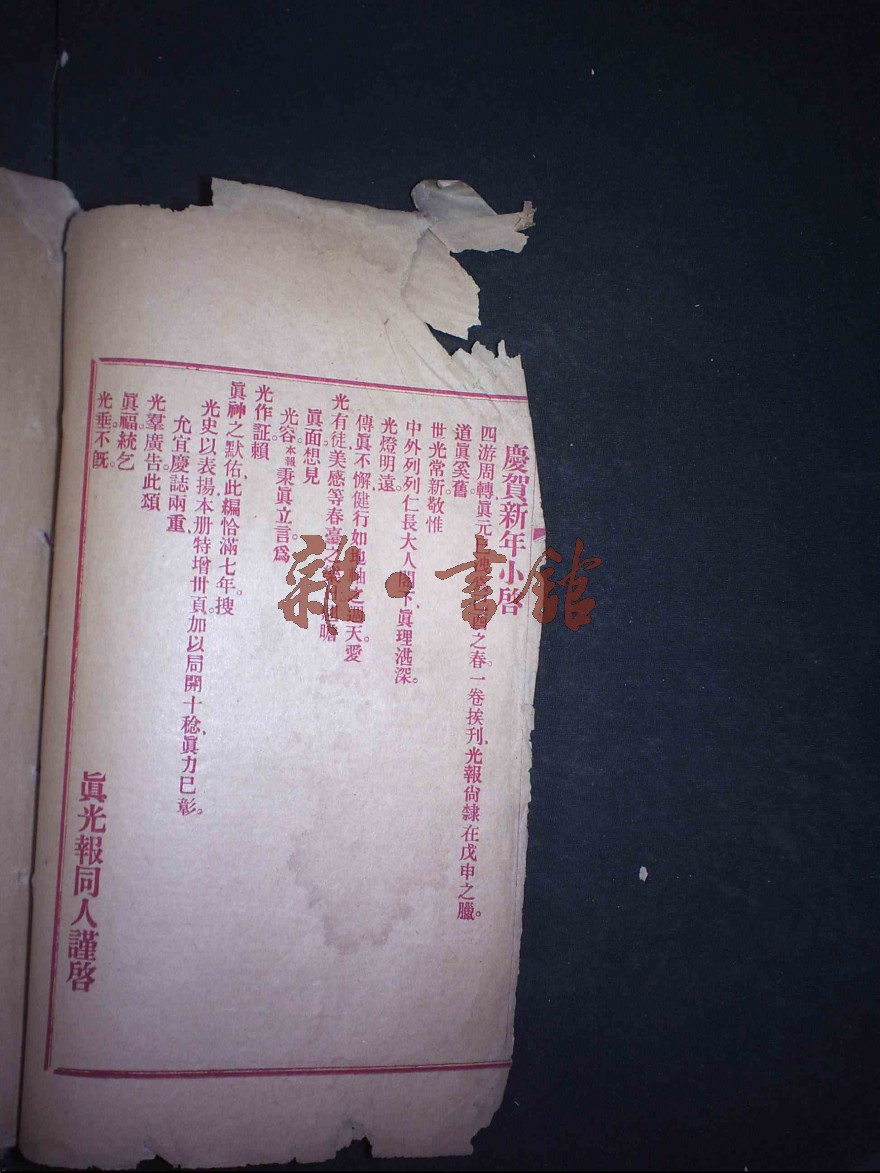 慶賀新年小啓
四游周轉眞元之春。一卷挨刊、光報尙隸在戊申之臘。
道眞奚舊。
世光常新敬惟
中外列列仁長大人閣下、眞理湛深。
光燈明遠
傳眞不懈、健行如地軸之過天。愛
光有徒、美感等春臺之瞻
眞面想見
光容。本報秉眞立言、爲
光作証賴
眞神之默佑、此編恰滿七年。搜
光史以表揚、本册特增卅頁。加以局開十稔、眞力已彰。
允宜慶誌兩重、
光羣廣告此頌
眞福。統乞
光垂不旣。
眞光報同人謹啓
雜·書館